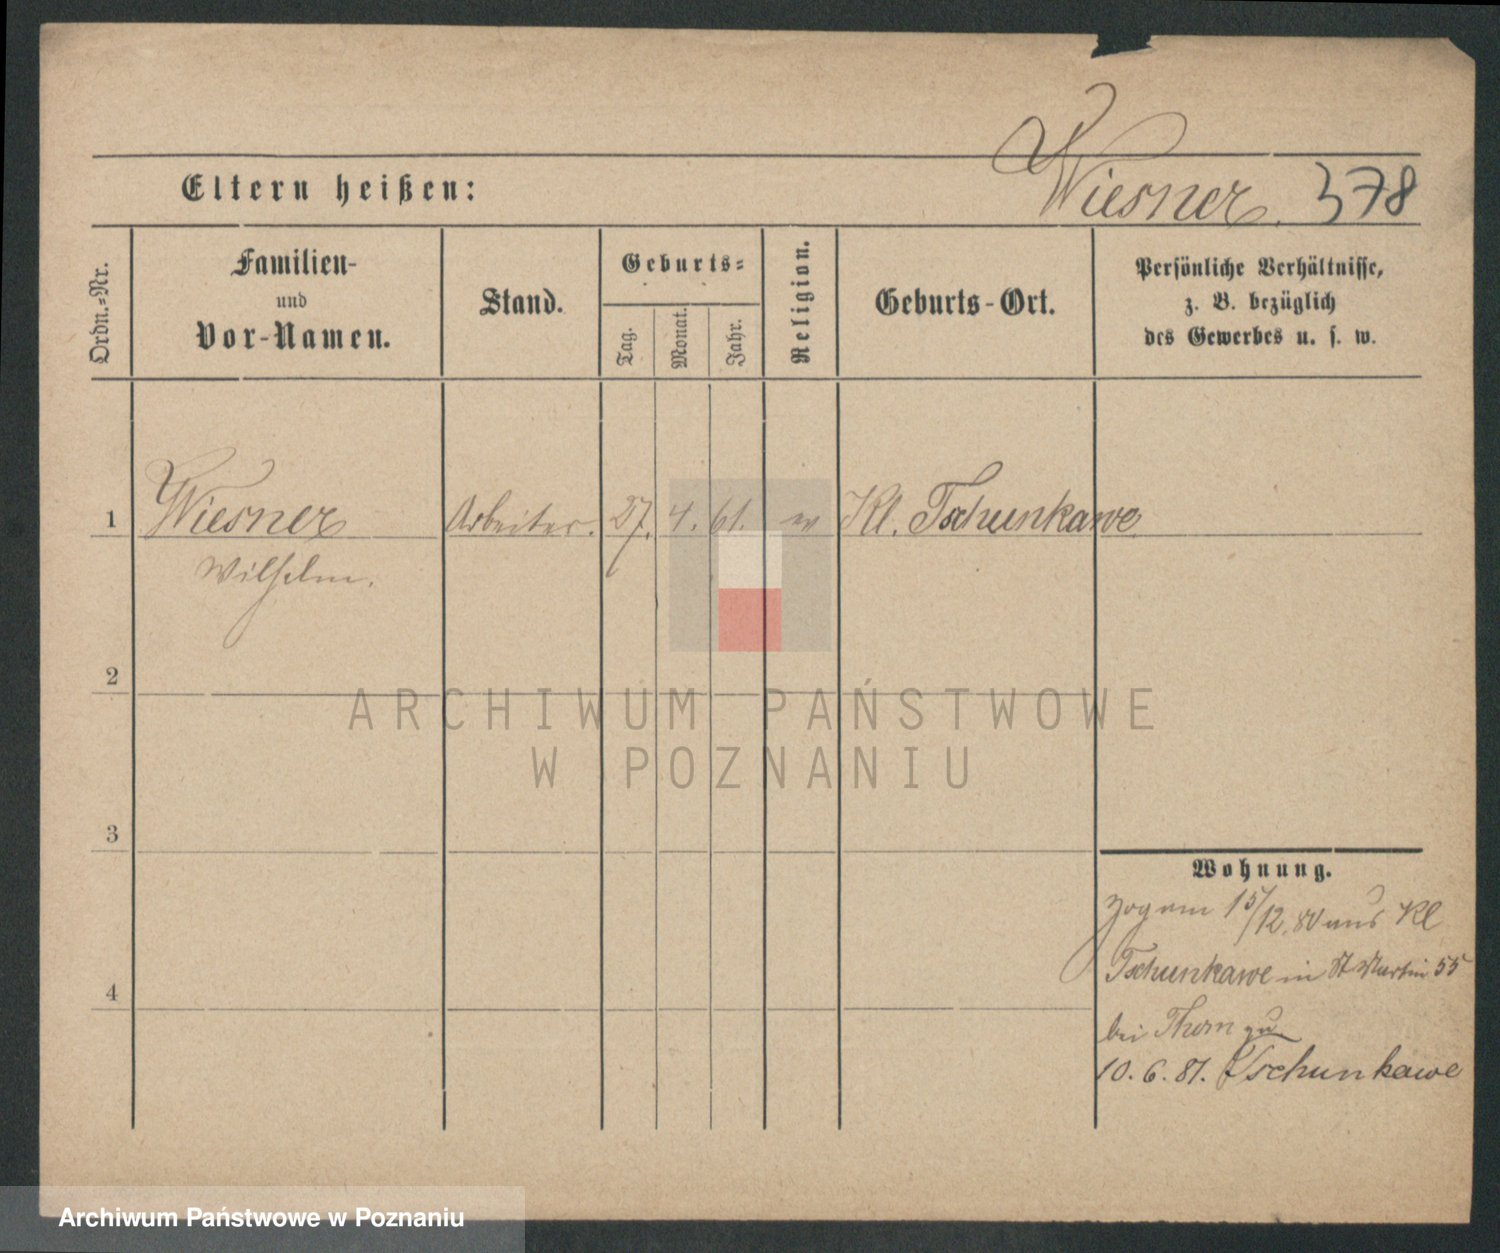 Wiesner. 378
Eltern heißen:
Ordn.-Nr.
Familien-
und
Vor-Namen.
Stand.
Geburts-
Tag.
Monat.
Jahr.
Religion.
Geburts-Ort.
Persönliche Verhältnisse,
z. B. bezüglich
des Gewerbes u. s. w.
1 Wiesner Arbeiter. 27. 4. 61. ev Kl. Tschunkawe
Wilhelm.
2
3
4
Wohnung.
zog am 15/12. 80 aus Kl
Tschunkawe in St Martin 55
bei Thorn zu
10. 6. 81. Tschunkawe
ARCHIWUM PAŃSTWOWE
W POZNANIU
Archiwum Państwowe w Poznaniu